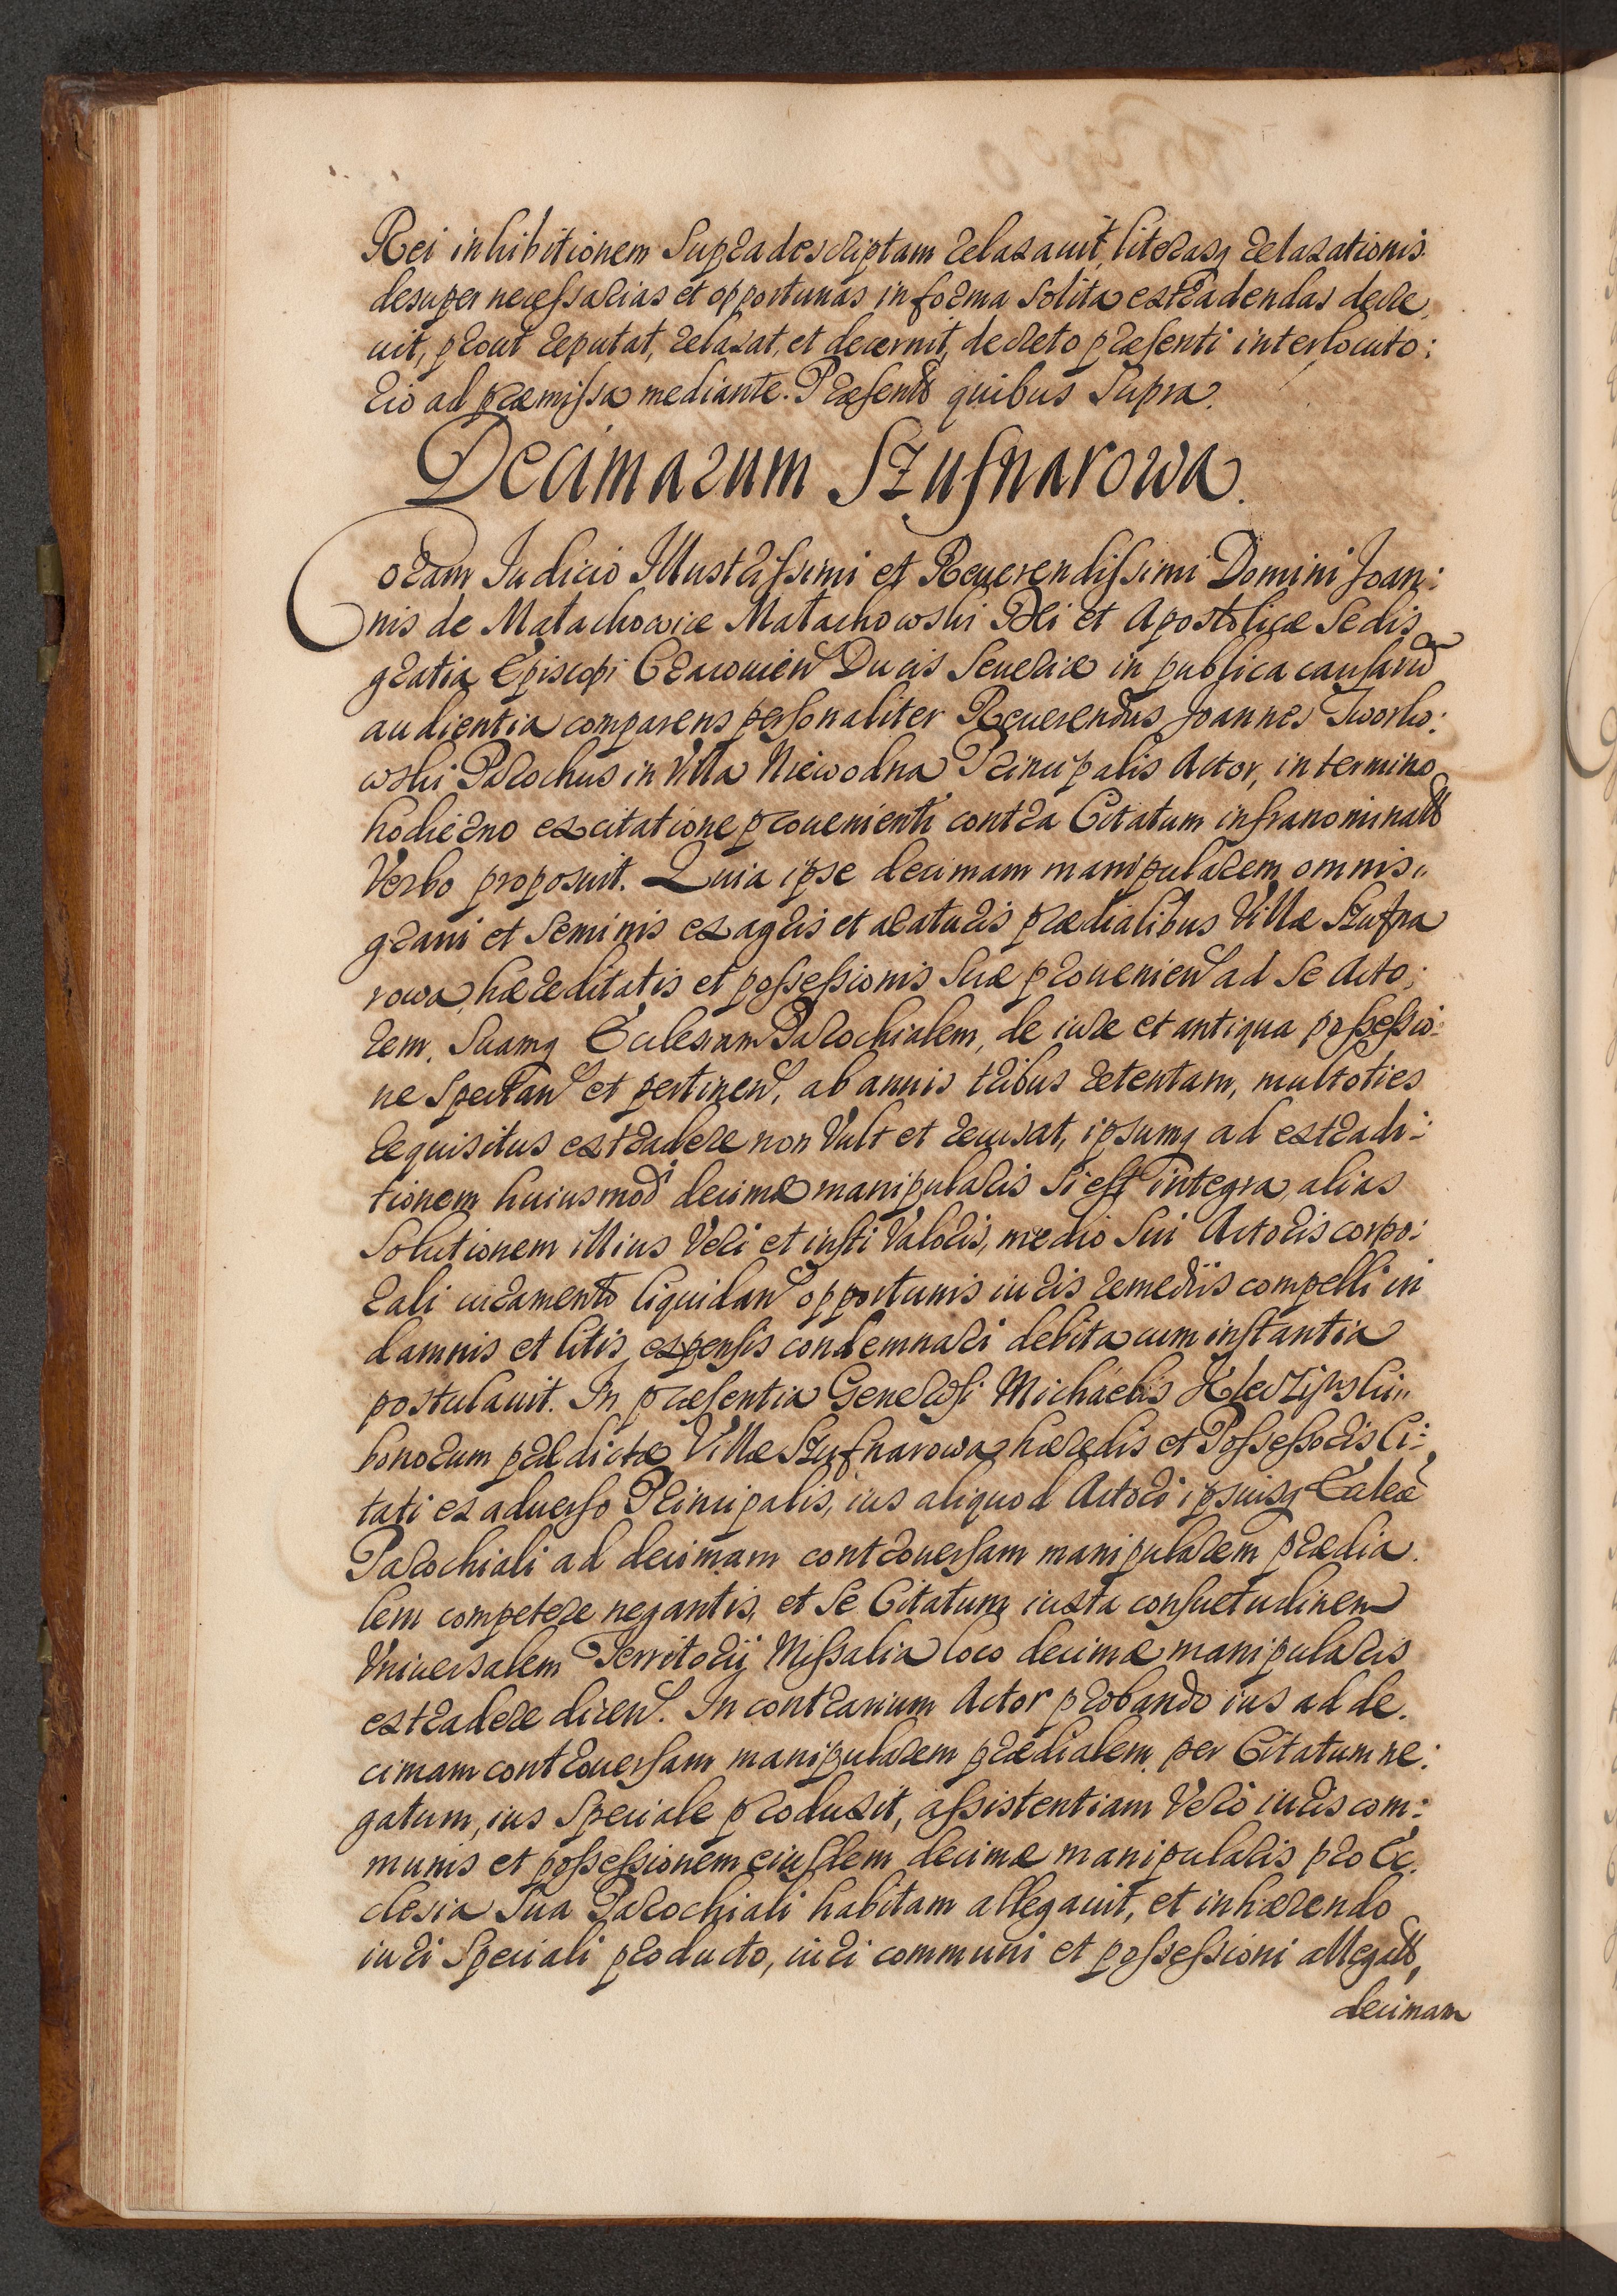 Rei inhibitionem Supradescriptam relaxauit, literasq relaxationis
desuper necessarias et opportunas in forma Solita extradendas decre,
uit, prout reputat, relaxat, et decernit, decreto præsenti interlocuto:
rio ad præmissa mediante. Præsentb quibus Supra.
Decimarum Szufnarowa.
Coram Iudicio Illustrissimi et Reuerendissimi Domini Joan:
nis de Małachowice Małachowski Dei et Apostolicæ Sedis
gratia Episcopi Cracouien Ducis Seueriæ in publica causarū
audientia comparens personaliter Reuerendus Joannes Jworko:
wski Parochus in Villa Niewodna Principalis Actor, in termino
hodierno ex citatione prouenienti contra Citatum infranominatb
Verbo proposuit. Quia ipse decimam manipularem omnis„
grani et Seminis ex agris et araturis prædialibus Villæ Szufna
rowa, hæreditatis et possessionis Suæ prouenien ad Se Acto:
rem, Suamq Ecclesiam Parochialem, de iure et antiqua possessio:
ne Spectan et pertinen, ab annis tribus retentam, multoties
requisitus extradere non Vult et recusat, ipsumq ad extradi:
tionem huiusmodi decimæ manipularis Si est integra, alias
Solutionem illius Veri et iusti Valoris, medio Sui Actoris corpo:
rali iuramento liquidan opportunis iuris remediis compelli in
damnis et litis expensis condemnari debita cum instantia
postulauit. In præsentia Generosi Michaelis Kleczyński„
bonorum prædictæ Villæ Szufnarowa hæredis et Possessoris Ci:
tati ex aduerso Principalis, ius aliquod Actori ipsiusq Eccleæ
Parochiali ad decimam controuersam manipularem prædia.
lem competere negantis, et Se Citatum iuxta consuetudinem
Vniuersalem Territorij Missalia loco decimæ manipularis
extradere dicen. In contrarium Actor probando ius ad de.
cimam controuersam manipularem prædialem per Citatum ne:
gatum, ius Speciale produxit, assistentiam Vero iuris com:
munis et possessionem eiusdem decimæ manipularis pro Ec.
clesia Sua Parochiali habitam allegauit, et inhærendo
iuri Speciali producto, iuri communi et possessioni allegatb,
decimam